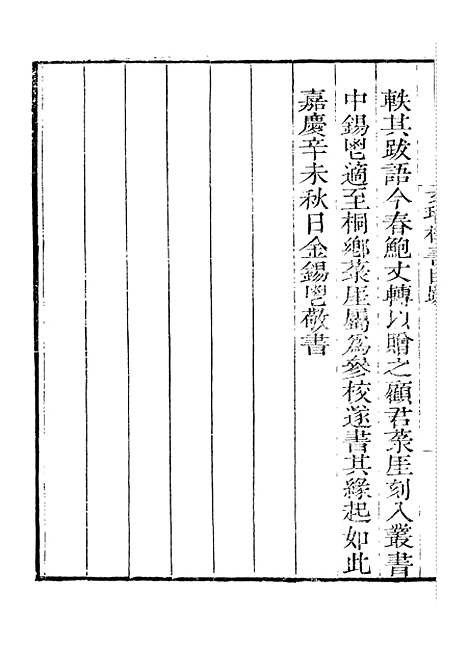 軼其跋語今春鮑丈轉以贈之顧君菉厓刻入叢書
中錫鬯適至桐鄉菉厓屬爲參校遂書其緣起如此
嘉慶辛未秋日金錫鬯敬書